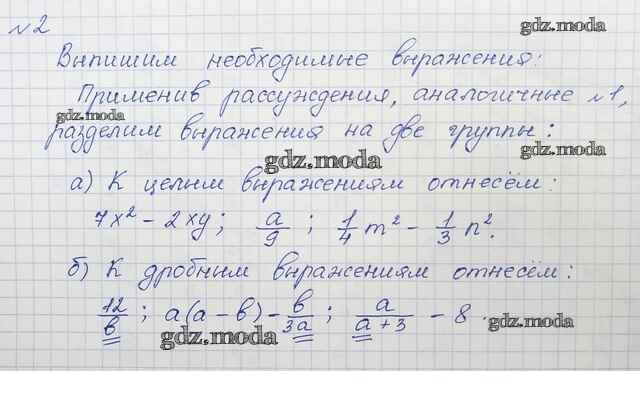 №2
gdz.moda
Выпишим необходимые выражения:
Применив рассуждения, аналогичные №1,
gdz.moda
разделим выражения на две группы:
gdz.moda
gdz.moda
а) К целым выражениям отнесём:
7x² - 2xy; a/9; 1/4 m² - 1/3 n².
б) К дробным выражениям отнесём:
12/b; a(a-b) - b/3a; a/a+3 - 8.
gdz.moda
gdz.moda